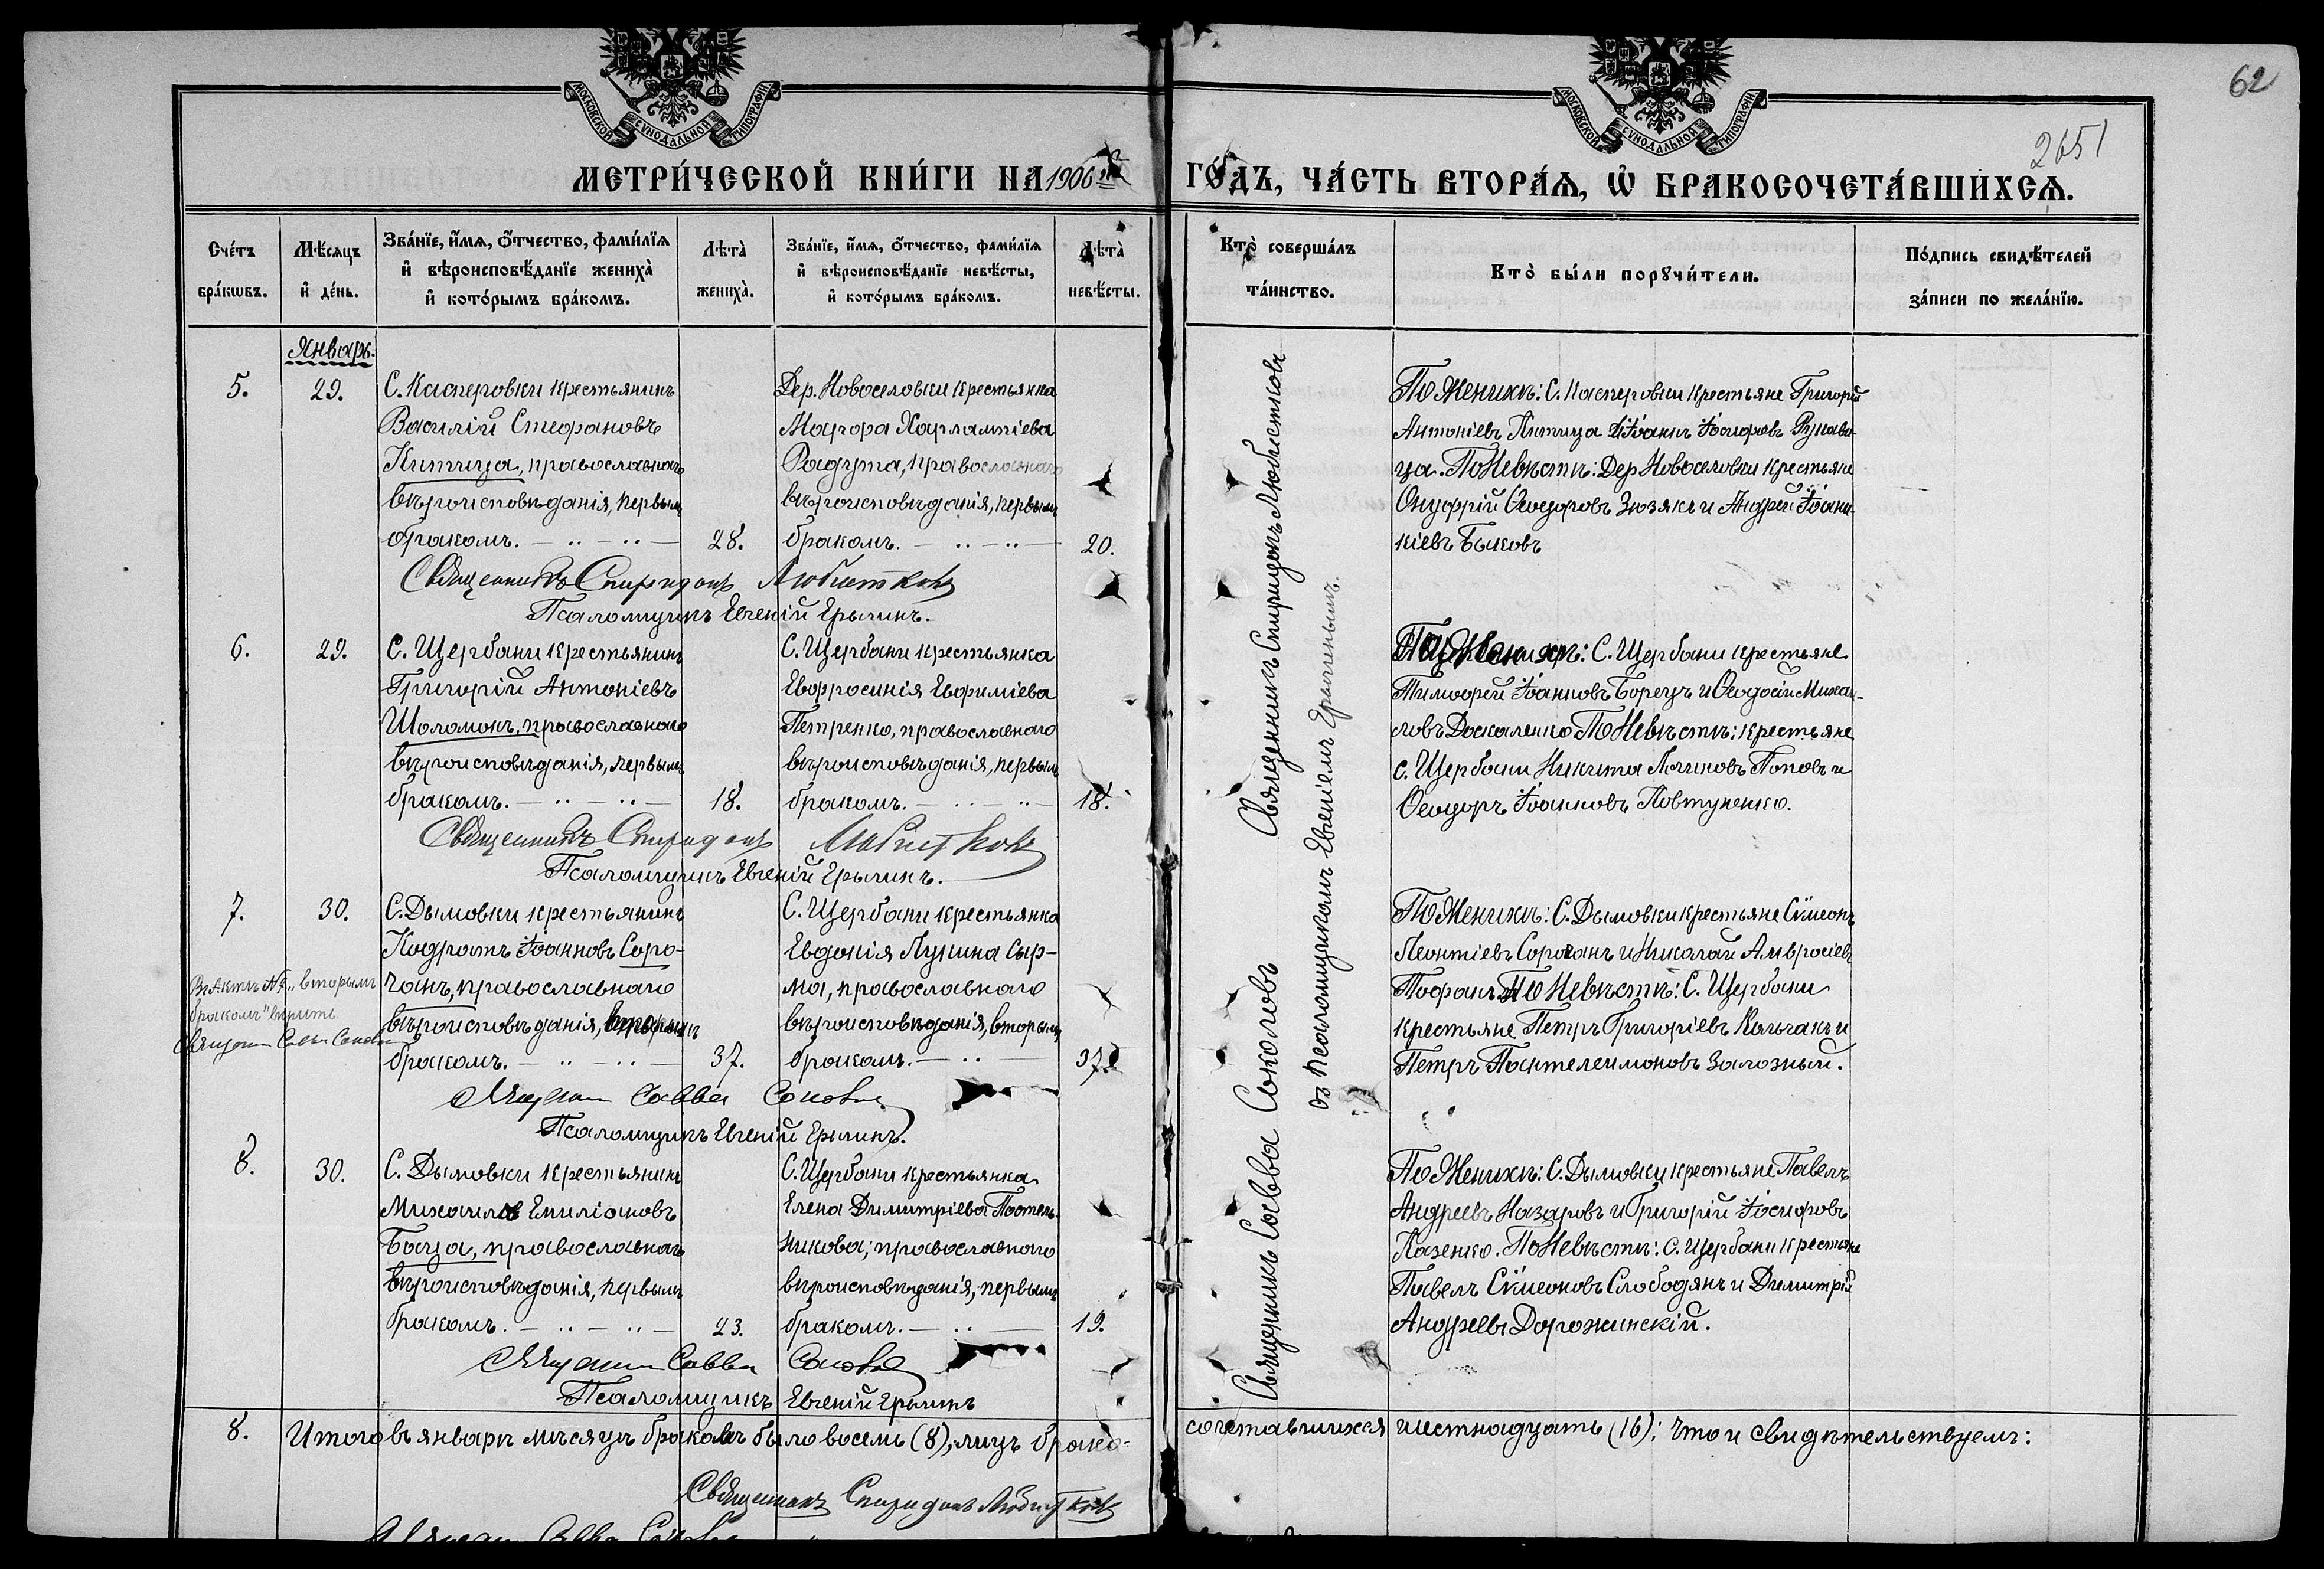 62
2651
МОСКОВСКОЙ СѴНОДАЛЬНОЙ ТИПОГРАФІИ
МОСКОВСКОЙ СѴНОДАЛЬНОЙ ТИПОГРАФІИ
МЕТРИ́ЧЕСКОЙ КНИ́ГИ НА 1906 ГО́ДЪ, ЧА́СТЬ ВТОРА́Я, Ѡ҆ БРАКОСОЧЕТА́ВШИХСЯ.
Сче́тъ бра́кѡвъ.
Мѣ́сяцъ и҆ де́нь.
Зва́нїе, и҆́мя, ѻ҆́тчество, фами́лїя и҆ вѣроисповѣ́данїе жениха̀ и҆ кото́рымъ бра́комъ.
Лѣта̀ жениха̀.
Зва́нїе, и҆́мя, ѻ҆́тчество, фами́лїя и҆ вѣроисповѣ́данїе невѣ́сты, и҆ кото́рымъ бра́комъ.
Лѣта̀ невѣ́сты.
Кто̀ соверша́лъ та́инство.
Кто̀ бы́ли порꙋчи́тели.
По́дпись свидѣ́телей за́писи по жела́нїю.
Январь.
5.
29.
С. Касперовки крестьянинъ
Василій Стефановъ
Китица, православнаго
вѣроисповѣданія, первымъ
бракомъ.
28.
Дер. Новоселовки крестьянка
Мавра Харлампіева
Радута, православнаго
вѣроисповѣданія, первымъ
бракомъ.
20.
По Женихѣ: С. Касперовки крестьяне Григорій
Антоніевъ Китица и Іоаннъ Іосифовъ Рукави-
ца. По Невѣстѣ: Дер. Новоселовки крестьяне
Онуфрій Ѳеодоровъ Зюзякъ и Андрей Іоанни-
кіевъ Быковъ
Священникъ Спиридонъ Любистковъ
Псаломщикъ Евгеній Ерылинъ.
6.
29.
С. Щербани крестьянинъ
Григорій Антоніевъ
Шоломонъ, православнаго
вѣроисповѣданія, первымъ
бракомъ.
18.
С. Щербани крестьянка
Евфросинія Евфиміева
Петренко, православнаго
вѣроисповѣданія, первымъ
бракомъ.
18.
С. Щербани крестьяне
Тимофей Іоанновъ Борецъ и Ѳеодосій Михаи-
ловъ Доскаленко По Невѣстѣ: крестьяне
с. Щербани Никита Попов и
Ѳеодоръ Іоанновъ Ковтуненко.
Священникъ Спиридонъ Любистковъ
Псаломщикъ Евгеній Ерылинъ.
7.
30.
С. Дымовки крестьянинъ
Кодратъ Іоанновъ Соро-
чанъ, православнаго
вѣроисповѣданія, вторымъ
бракомъ.
37.
С. Щербани крестьянка
Евдокія Лукина Сыр-
ма, православнаго
вѣроисповѣданія, вторымъ
бракомъ.
37.
По Женихѣ: С. Дымовки крестьяне Сѵмеонъ
Леонтіевъ Сорочанъ и Николай Амвросіевъ
Тофанъ. По Невѣстѣ: С. Щербани
крестьяне Петръ Григоріевъ Колчакъ и
Петръ Пантелеимоновъ Залозный.
Въ актѣ № 7 „вторымъ
бракомъ" вѣрить.
Священникъ Савва Соколовъ
Священникъ Савва Соколовъ
Псаломщикъ Евгеній Ерылинъ.
8.
30.
С. Дымовки крестьянинъ
Михаилъ Емиліановъ
Баца, православнаго
вѣроисповѣданія, первымъ
бракомъ.
23.
С. Щербани крестьянка
Елена Димитріева Постель-
никова, православнаго
вѣроисповѣданія, первымъ
бракомъ.
19.
По Женихѣ: С. Дымовки крестьяне Павелъ
Андреевъ Назаровъ и Григорій Іосифовъ
Казенко. По Невѣстѣ: С. Щербани крестьяне
Павелъ Сѵмеоновъ Слободянъ и Димитрій
Андреевъ Дорожинскій.
Священникъ Савва Соколовъ
Псаломщикъ Евгеній Ерылинъ
Священникъ Спиридонъ Любистковъ
Священникъ Савва Соколовъ
съ псаломщикомъ Евгеніемъ Ерылинымъ.
8.
Итого въ январѣ мѣсяцѣ браковъ было восемь (8), лицъ брако-
сочетавшихся шестнадцать (16); что и свидѣтельствуемъ:
Священникъ Спиридонъ Любистковъ